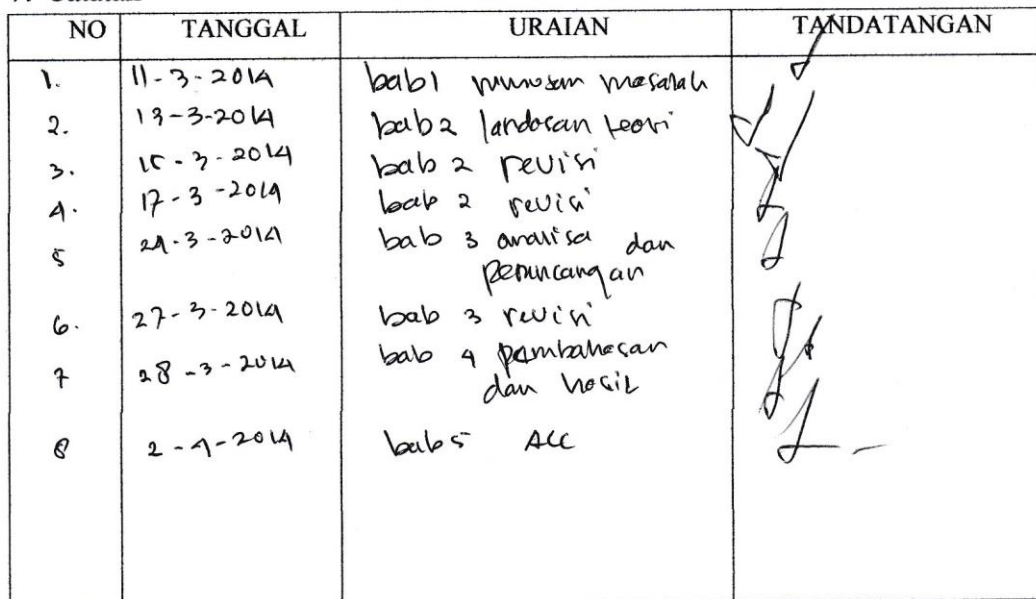 NO TANGGAL URAIAN TANDATANGAN
1. 11-3-2014 bab 1 rumusan masalah
2. 13-3-2014 bab 2 landasan teori
3. 15-3-2014 bab 2 revisi
4. 17-3-2014 bab 2 revisi
5 24-3-2014 bab 3 analisa dan
perancangan
6. 27-3-2014 bab 3 revisi
7 28-3-2014 bab 4 pembahasan
dan hasil
8 2-4-2014 bab 5 ACC